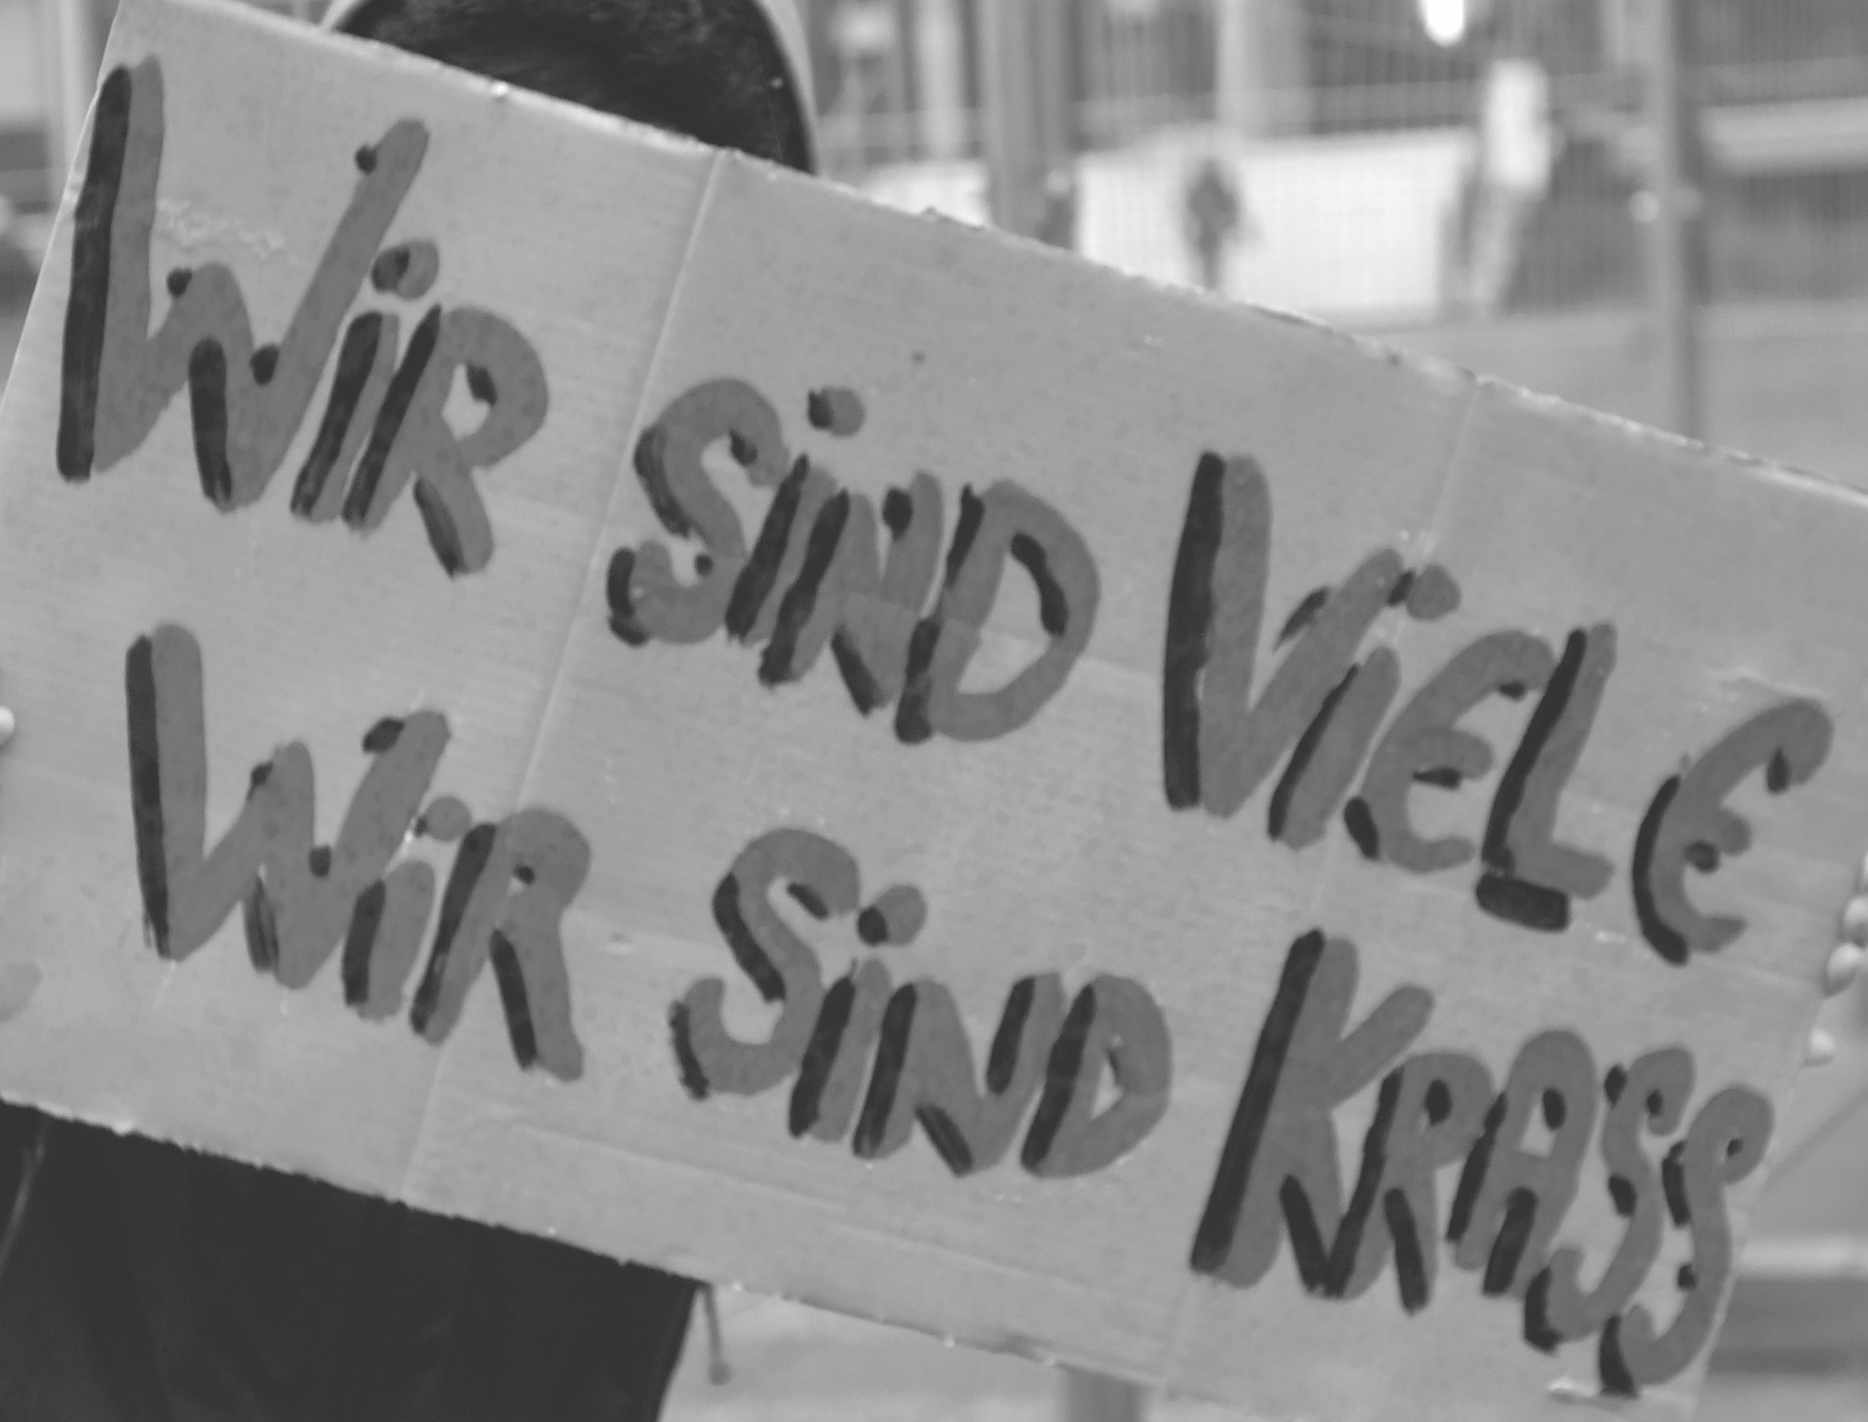 WiR SiND ViELE
WiR SiND KRASS